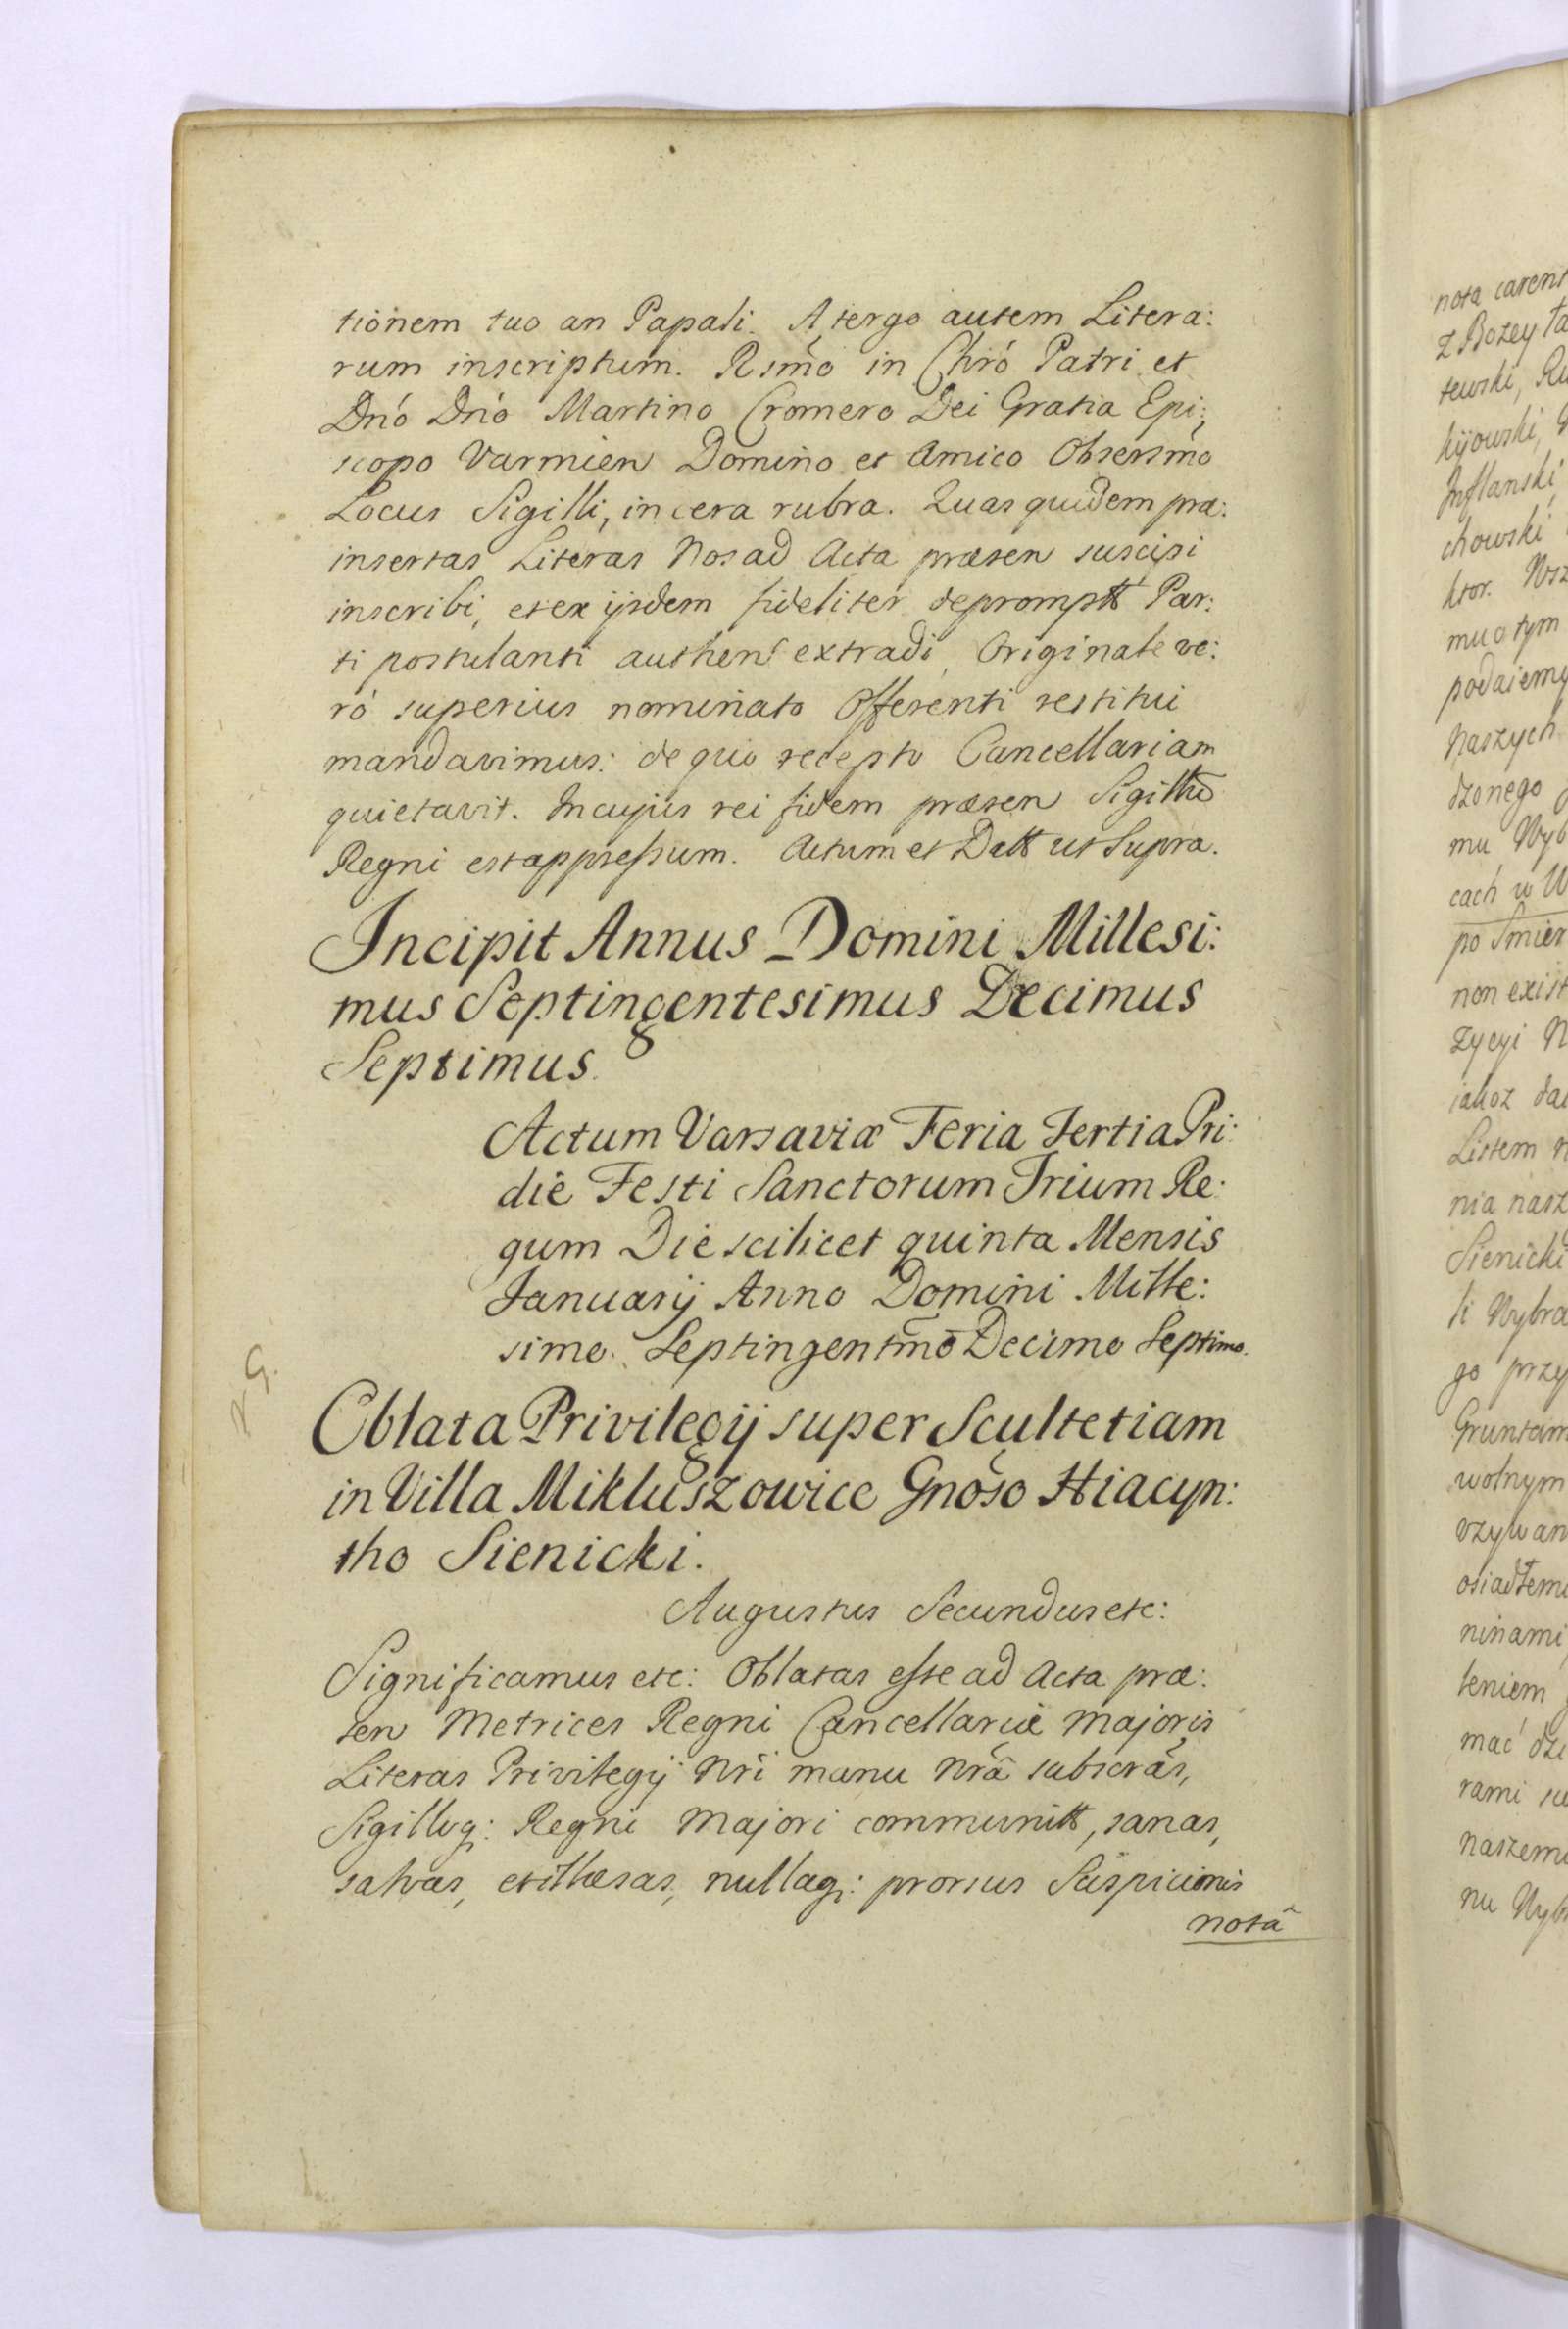 tionem tuo an Papali. A tergo autem Litera:
rum inscriptum. Rsmo in Chró Patri et
Dnó Dnó Martino Cromero Dei Gratia Epi:
scopo Varmien Domino et Amico Obsersmo
Locus Sigilli, in cera rubra. Quas quidem præ:
insertas Literas Nos ad Acta præsen suscipi
inscribi, et ex ijsdem fideliter deprompt Par:
ti postulanti authen extradi, Originale ve:
ró superius nominato Offerenti restitui
mandavimus: de quo recepto Cancellariam
quietavit. In cujus rei fidem præsen Sigillū
Regni est appressum. Actum et Datt ut Supra.
Incipit Annus Domini Millesi:
mus Septingentesimus Decimus
Septimus.
Actum Varsaviæ Feria Tertia Pri:
die Festi Sanctorum Trium Re:
gum Die scilicet quinta Mensis
Januarij Anno Domini Mille:
simo Septingentmō Decimo Septimo.
Oblata Privilegij super Scultetiam
in Villa Mikluszowice Gnóso Hiacyn:
tho Sienicki.
Augustus Secundus etc:
Significamus etc: Oblatas esse ad Acta præ:
sen Metrices Regni Cancellariæ Majoris
Literas Privilegij Nri manu Nrâ subscrâs,
Sigilloq: Regni Majori communitt, sanas,
salvas, et illæsas, nullaq: prorsus Suspicionis
notâ
nota carent
z Bozey
hijowski,
Inflanski,
chowski
ktor.
mu o tym
podaiemy
Naszych
dzonego
mu Wyb
cach w W
po Smier
non exist
zycyi N
iakoz
Listem n
nia nasz
Sienicki
li Wybra
go przy
Gruntam
wolnym
vzywan
osiadłem
ninami,
leniem
mać dzi
rami su
naszem
nu Wyb